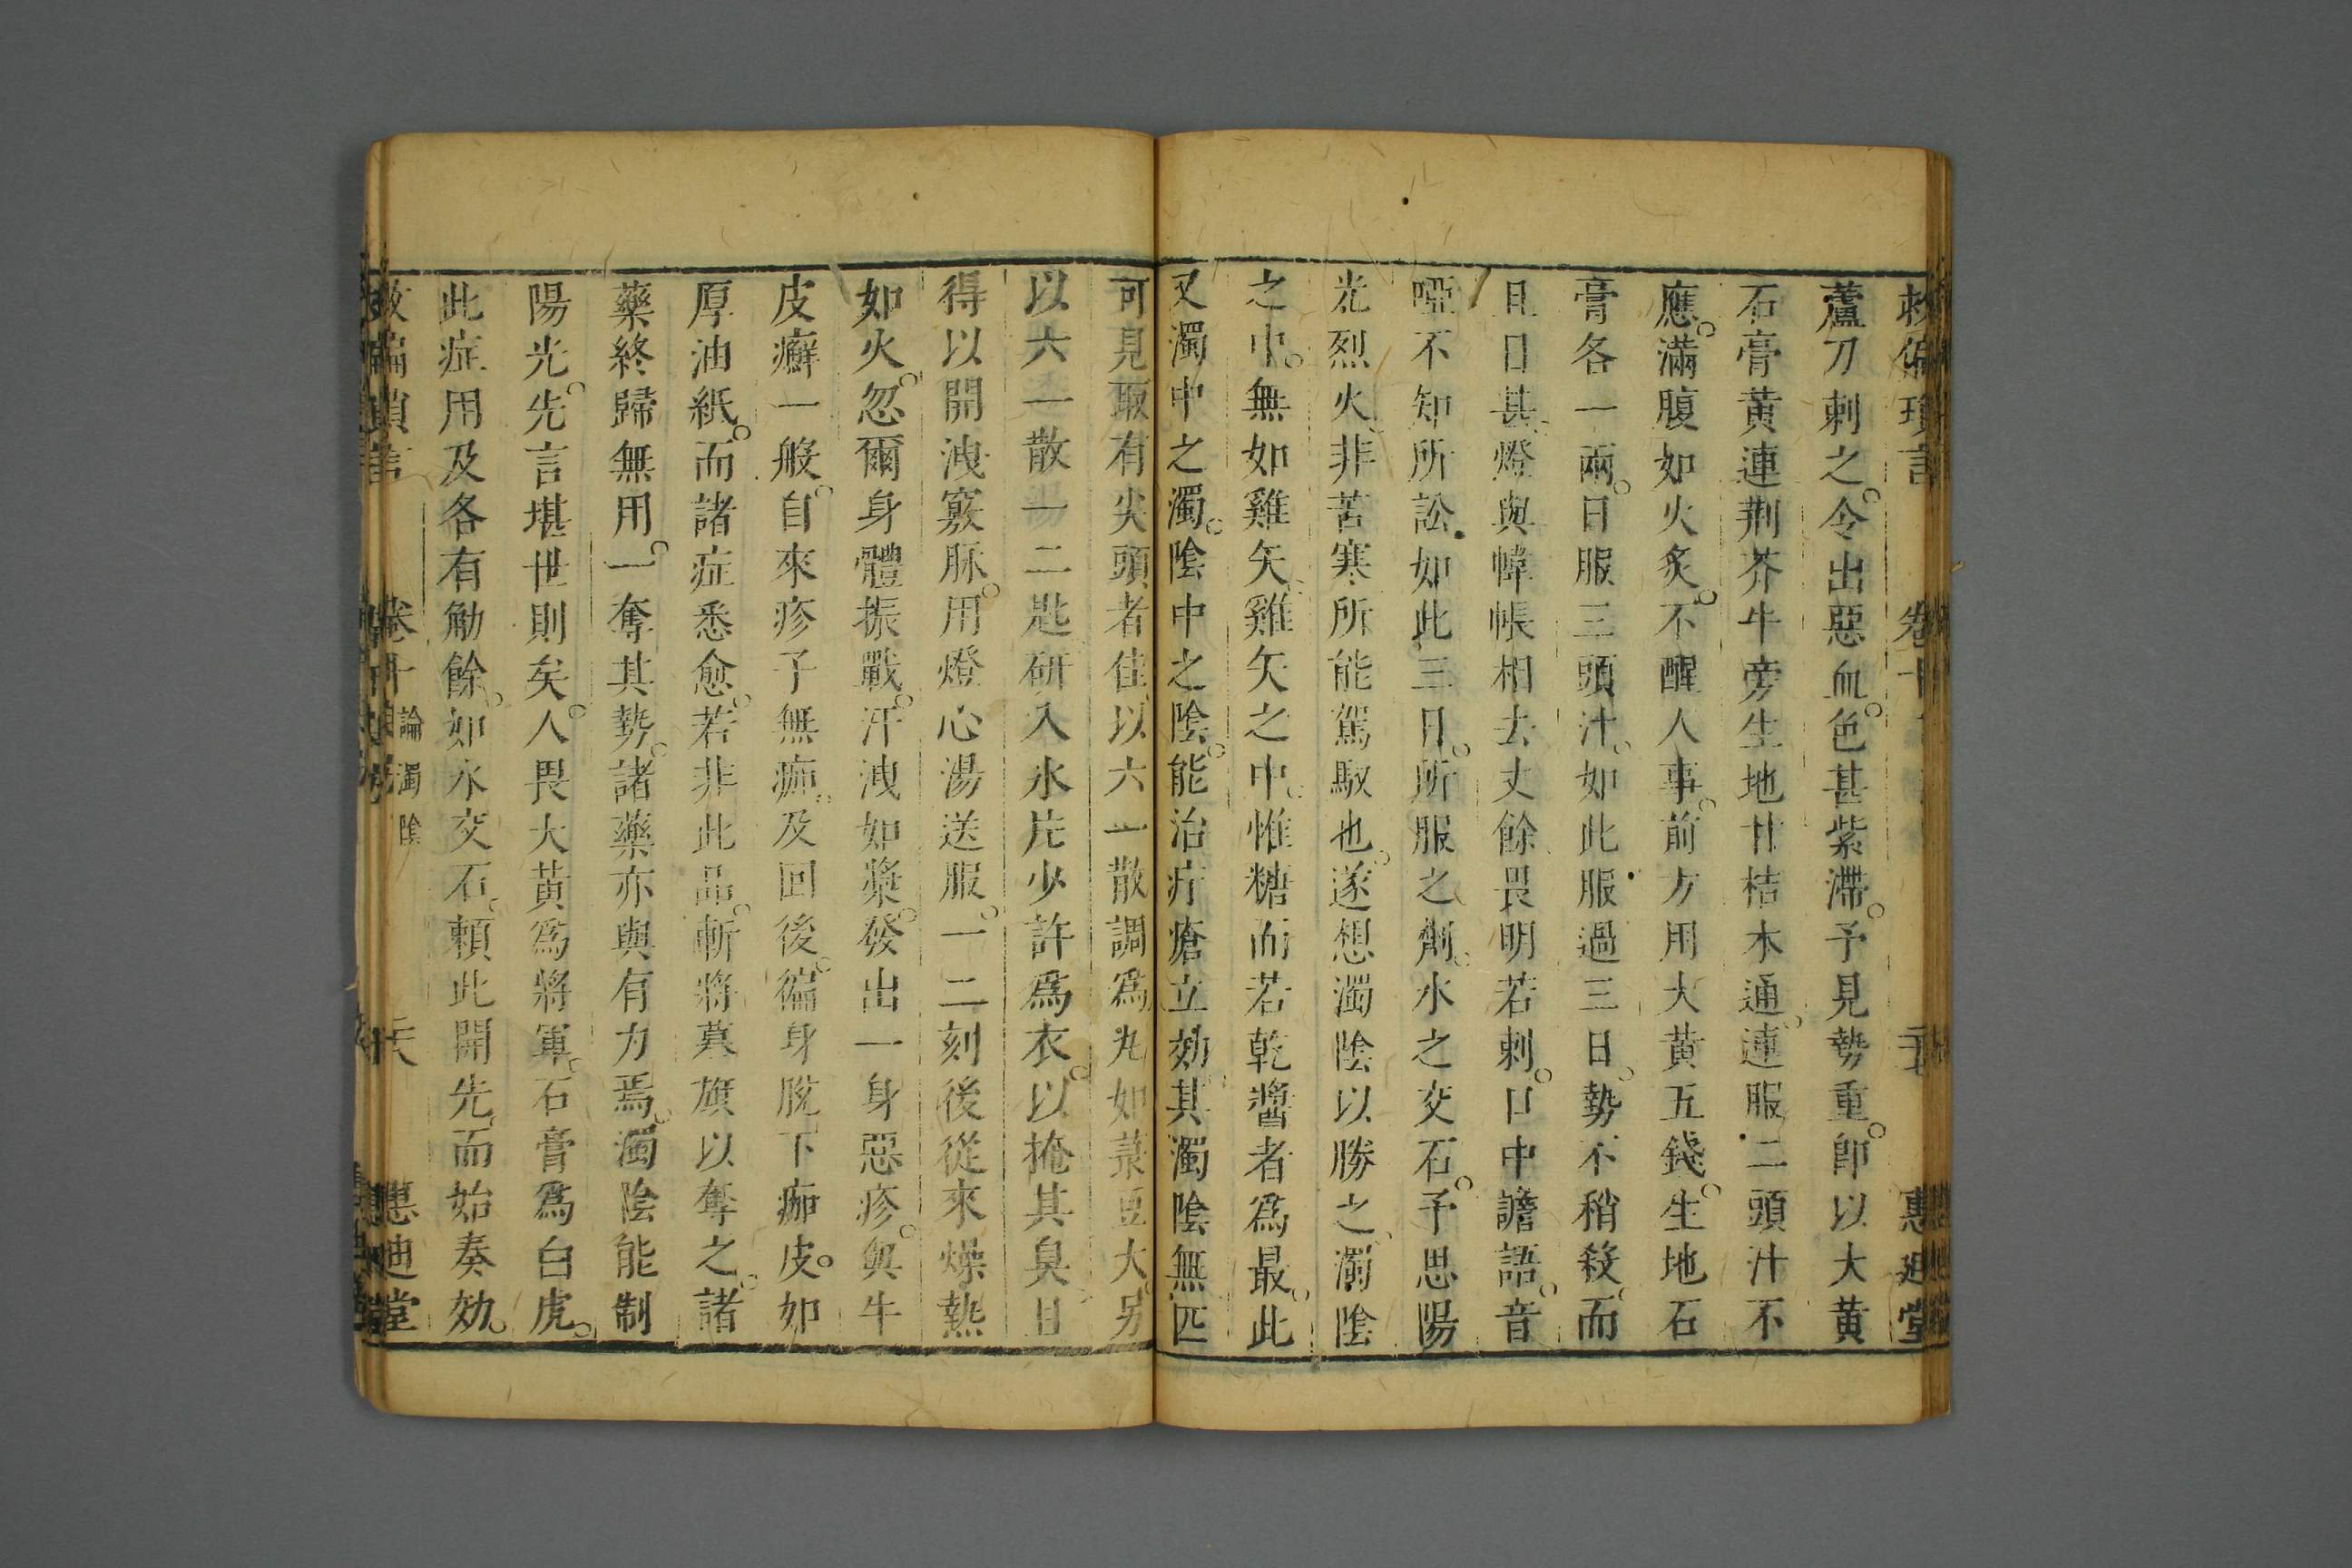 救偏瑣言 卷十 惠迪堂
蘆刀刺之。令出惡血。色甚紫滯。予見勢重。卽以大黄
石膏黄連荆芥牛旁生地甘桔木通。連服二頭汁不
應。滿腹如火炙。不醒人事。前方用大黄五錢。生地石
膏各一兩。日服三頭汁。如此服過三日。勢不稍殺。而
且日甚。燈與幃帳相去丈餘畏明若刺。口中譫語。音
啞不知所訟。如此三日。所服之劑。水之交石。予思陽
光烈火。非苦寒所能駕馭也。遂想濁陰以勝之。濁陰
之中。無如雞矢。雞矢之中。惟糖而若乾醬者爲最。此
又濁中之濁。陰中之陰。能治疔瘡立効。其濁陰無匹
可見取有尖頭者佳以六一散調爲丸如菉豆大。另
以六一散一二匙研入氷片少許爲衣。以掩其臭且
得以開洩竅脉。用燈心湯送服。一二刻後從來燥熱
如火。忽爾身體振戰。汗洩如漿。發出一身惡疹。與牛
皮癬一般。自來疹子無痂。及回後。徧身脫下痂皮。如
厚油紙。而諸症悉愈。若非此品。斬將搴旗以奪之。諸
藥終歸無用。一奪其勢。諸藥亦與有力焉。濁陰能制
陽光。先言堪世則矣。人畏大黄爲將軍。石膏爲白虎。
此症用及各有觔餘。如水交石。賴此開先。而始奏効。
救偏瑣言 卷十 論濁陰 惠迪堂